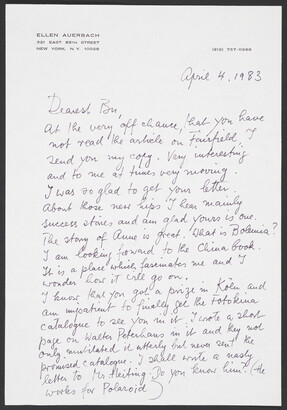 ELLEN AUERBACH
321 EAST 85TH STREET
NEW YORK, N.Y. 10028
(212) 737-0985
April 4, 1983
Dearest
At the very off chance, that you have
not read the article on Fairfield, I
send you my copy. Very interesting
and to me at times very moving.
I was so glad to get your letter.
About those new hips I hear mainly
success stories and am glad yours is one.
The story of Anne is great. What is
I am looking forward to the China book.
It is a place which fascinates me and I
wonder how it will go on.
I know that you got a prize in Köln and
am impatient to finally get the Fotokina
catalogue to see you in it. I wrote a short
page on Walter Peterhans in it and they not
only mutilated it utterly but never sent the
promised catalogue. I shall write a nasty
letter to Mr. Do you know him? (He
works for Polaroid)